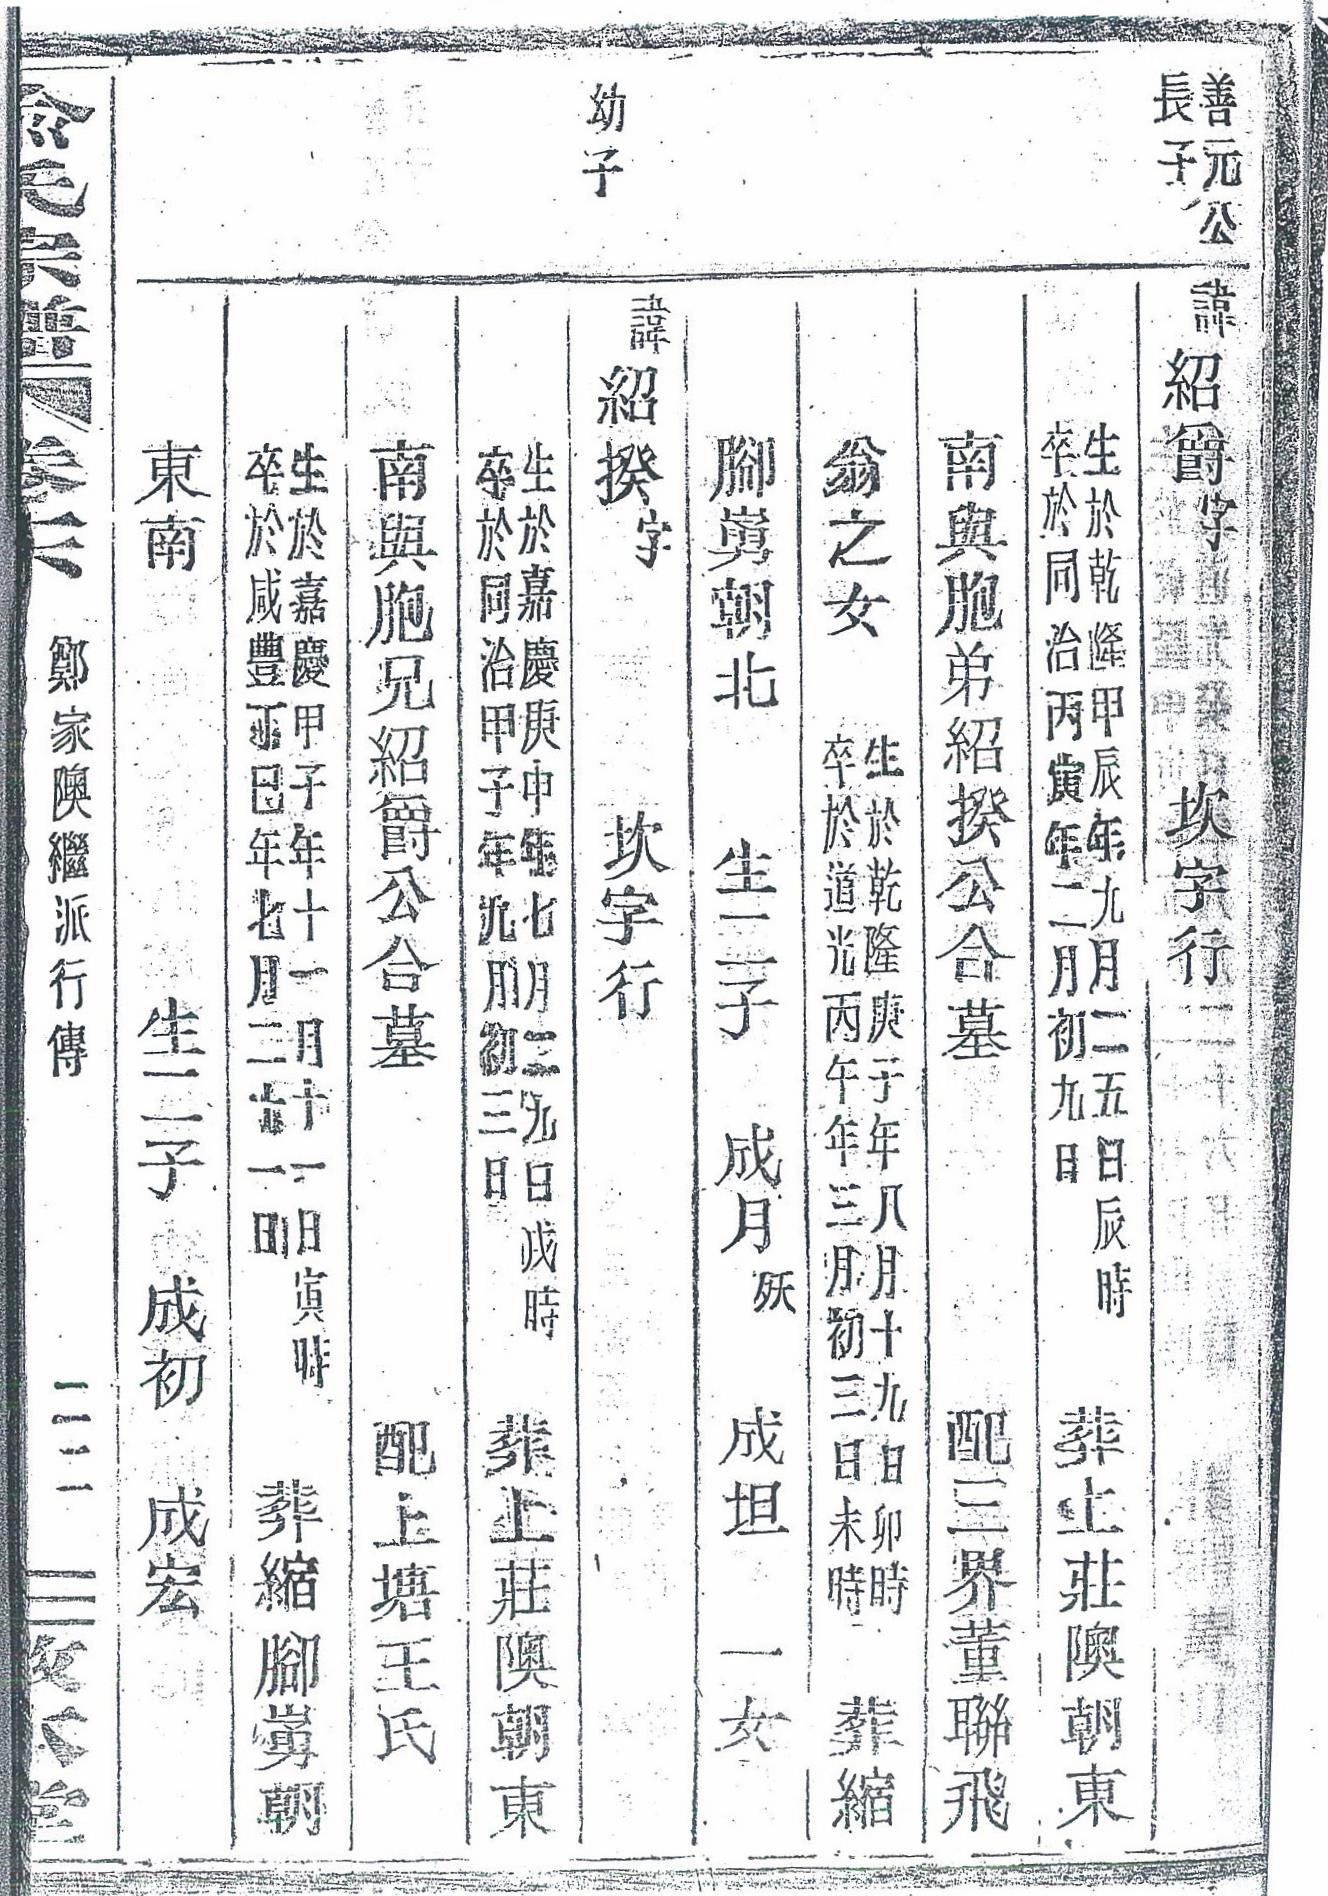 善元公
長子
諱紹爵字 坎字行
生於乾隆甲辰年九月二五日辰時
卒於同治丙寅年二月初九日
葬上莊隩朝東
南與胞弟紹揆公合墓 配三界董聯飛
翁之女
生於乾隆庚子年八月十九日卯時
卒於道光丙午年三月初三日未時
葬縮
腳嵩朝北 生二子 成月 殀 成坦 一女
幼子
諱紹揆字 坎字行
生於嘉慶庚申年七月二九日戌時
卒於同治甲子年九月初三日
葬上莊隩朝東
南與胞兄紹爵公合墓 配上塘王氏
生於嘉慶甲子年十一月十一日寅時
卒於咸豐丁巳年七月二十一日
葬縮腳嵩朝
東南 生二子 成初 成宏
俞氏宗譜 卷六 鄭家隩繼派行傳 一二二 敦本堂